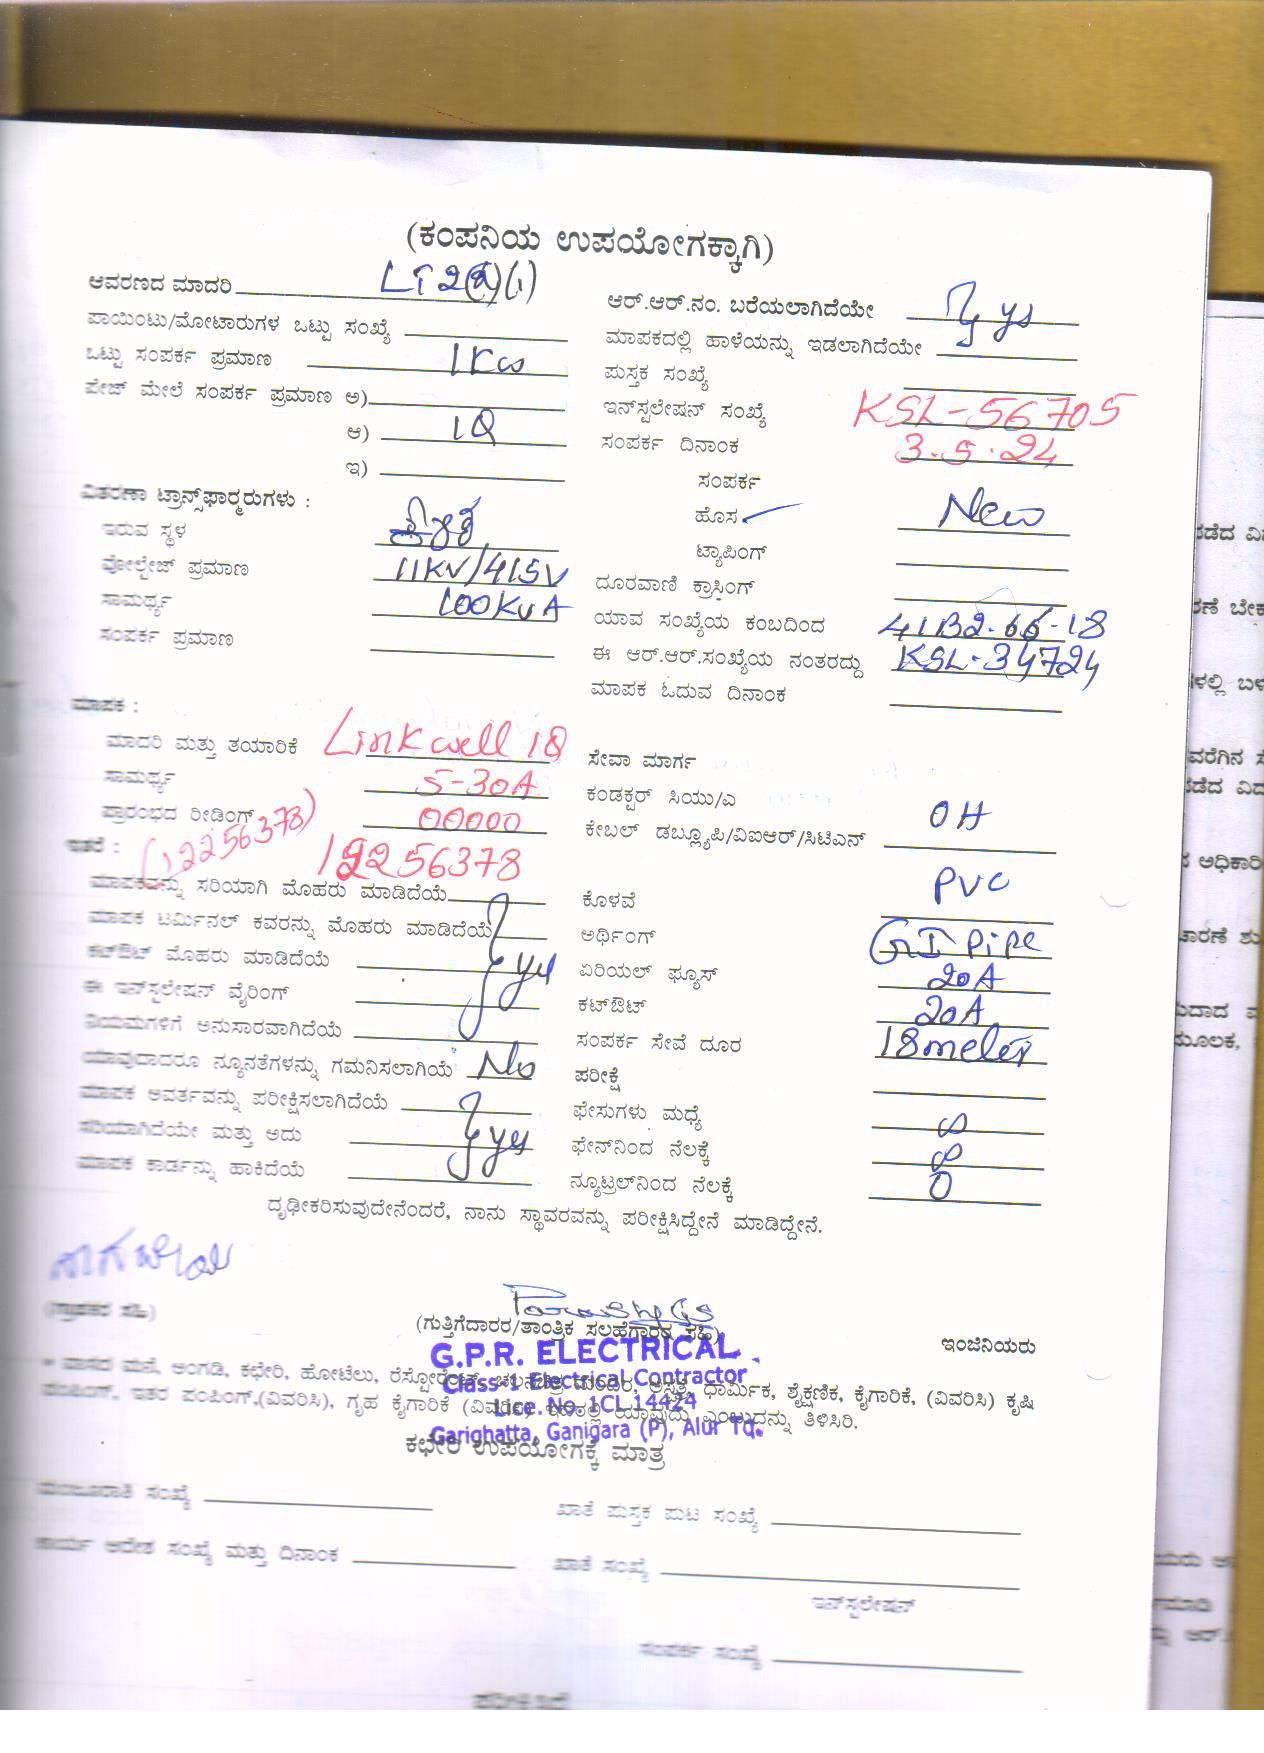 (ಕಂಪನಿಯ ಉಪಯೋಗಕ್ಕಾಗಿ)
ಆವರಣದ ಮಾದರಿ LT2(a)(i)
ಪಾಯಿಂಟು/ಮೋಟಾರುಗಳ ಒಟ್ಟು ಸಂಖ್ಯೆ
ಒಟ್ಟು ಸಂಪರ್ಕ ಪ್ರಮಾಣ 1Kw
ಪೇಜ್ ಮೇಲೆ ಸಂಪರ್ಕ ಪ್ರಮಾಣ ಅ)
ಆ) 1Q
ಇ)
ವಿತರಣಾ ಟ್ರಾನ್ಸ್‌ಫಾರ್‍ಮರುಗಳು :
ಇರುವ ಸ್ಥಳ
ವೋಲ್ಟೇಜ್ ಪ್ರಮಾಣ 11KV/415V
ಸಾಮರ್ಥ್ಯ 100KVA
ಸಂಪರ್ಕ ಪ್ರಮಾಣ
ಆರ್.ಆರ್.ನಂ. ಬರೆಯಲಾಗಿದೆಯೇ yes
ಮಾಪಕದಲ್ಲಿ ಹಾಳೆಯನ್ನು ಇಡಲಾಗಿದೆಯೇ
ಪುಸ್ತಕ ಸಂಖ್ಯೆ
ಇನ್‌ಸ್ಟಲೇಷನ್ ಸಂಖ್ಯೆ KSL-56705
ಸಂಪರ್ಕ ದಿನಾಂಕ 3.5.24
ಸಂಪರ್ಕ
ಹೊಸ New
ಟ್ಯಾಪಿಂಗ್
ದೂರವಾಣಿ ಕ್ರಾಸಿಂಗ್
ಯಾವ ಸಂಖ್ಯೆಯ ಕಂಬದಿಂದ 41B2-66-18
ಈ ಆರ್.ಆರ್.ಸಂಖ್ಯೆಯ ನಂತರದ್ದು KSL-34724
ಮಾಪಕ ಓದುವ ದಿನಾಂಕ
ಮಾಪಕ :
ಮಾದರಿ ಮತ್ತು ತಯಾರಿಕೆ Linkwell 1Q
ಸಾಮರ್ಥ್ಯ 5-30A
ಪ್ರಾರಂಭದ ರೀಡಿಂಗ್ 00000
(12256378)
ಇತರೆ : 12256378
ಮಾಪಕವನ್ನು ಸರಿಯಾಗಿ ಮೊಹರು ಮಾಡಿದೆಯೆ
ಮಾಪಕ ಟರ್ಮಿನಲ್ ಕವರನ್ನು ಮೊಹರು ಮಾಡಿದೆಯೆ
ಕಟ್‌ಔಟ್ ಮೊಹರು ಮಾಡಿದೆಯೆ yes
ಈ ಇನ್‌ಸ್ಟಲೇಷನ್ ವೈರಿಂಗ್
ನಿಯಮಗಳಿಗೆ ಅನುಸಾರವಾಗಿದೆಯೆ
ಯಾವುದಾದರೂ ನ್ಯೂನತೆಗಳನ್ನು ಗಮನಿಸಲಾಗಿಯೆ No
ಮಾಪಕ ಅವರ್ತವನ್ನು ಪರೀಕ್ಷಿಸಲಾಗಿದೆಯೆ
ಸರಿಯಾಗಿದೆಯೇ ಮತ್ತು ಅದು yes
ಮಾಪಕ ಕಾರ್ಡನ್ನು ಹಾಕಿದೆಯೆ
ಸೇವಾ ಮಾರ್ಗ
ಕಂಡಕ್ಟರ್ ಸಿಯು/ಎ
ಕೇಬಲ್ ಡಬ್ಲ್ಯೂಪಿ/ವಿಐಆರ್/ಸಿಟಿಎನ್ OH
ಕೊಳವೆ PVC
ಅರ್ಥಿಂಗ್ GI Pipe
ಏರಿಯಲ್ ಫ್ಯೂಸ್ 20A
ಕಟ್‌ಔಟ್ 20A
ಸಂಪರ್ಕ ಸೇವೆ ದೂರ 18meter
ಪರೀಕ್ಷೆ
ಫೇಸುಗಳು ಮಧ್ಯೆ ∞
ಫೇನ್‌ನಿಂದ ನೆಲಕ್ಕೆ ∞
ನ್ಯೂಟ್ರಲ್‌ನಿಂದ ನೆಲಕ್ಕೆ 0
ದೃಢೀಕರಿಸುವುದೇನೆಂದರೆ, ನಾನು ಸ್ಥಾವರವನ್ನು ಪರೀಕ್ಷಿಸಿದ್ದೇನೆ ಮಾಡಿದ್ದೇನೆ.
(ಗ್ರಾಹಕರ ಸಹಿ)
(ಗುತ್ತಿಗೆದಾರರ/ತಾಂತ್ರಿಕ ಸಲಹೆಗಾರರ ಸಹಿ)
ಇಂಜಿನಿಯರು
G.P.R. ELECTRICAL
Class-1 Electrical Contractor
Lice. No. 1CL 14424
Garighatta, Ganigara (P), Alur Tq.
* ವಾಸದ ಮನೆ, ಅಂಗಡಿ, ಕಛೇರಿ, ಹೋಟೆಲು, ಧಾರ್ಮಿಕ, ಶೈಕ್ಷಣಿಕ, ಕೈಗಾರಿಕೆ, (ವಿವರಿಸಿ) ಕೃಷಿ
ಪಂಪಿಂಗ್, ಇತರ ಪಂಪಿಂಗ್,(ವಿವರಿಸಿ), ಗೃಹ ಕೈಗಾರಿಕೆ ಯಾವುದು ಎಂಬುದನ್ನು ತಿಳಿಸಿರಿ.
ಕಛೇರಿ ಉಪಯೋಗಕ್ಕೆ ಮಾತ್ರ
ಮಂಜೂರಾತಿ ಸಂಖ್ಯೆ
ಖಾತೆ ಪುಸ್ತಕ ಪುಟ ಸಂಖ್ಯೆ
ಕಾರ್ಯ ಆದೇಶ ಸಂಖ್ಯೆ ಮತ್ತು ದಿನಾಂಕ
ಖಾತೆ ಸಂಖ್ಯೆ
ಇನ್‌ಸ್ಟಲೇಷನ್
ಸಂಪರ್ಕ ಸಂಖ್ಯೆ